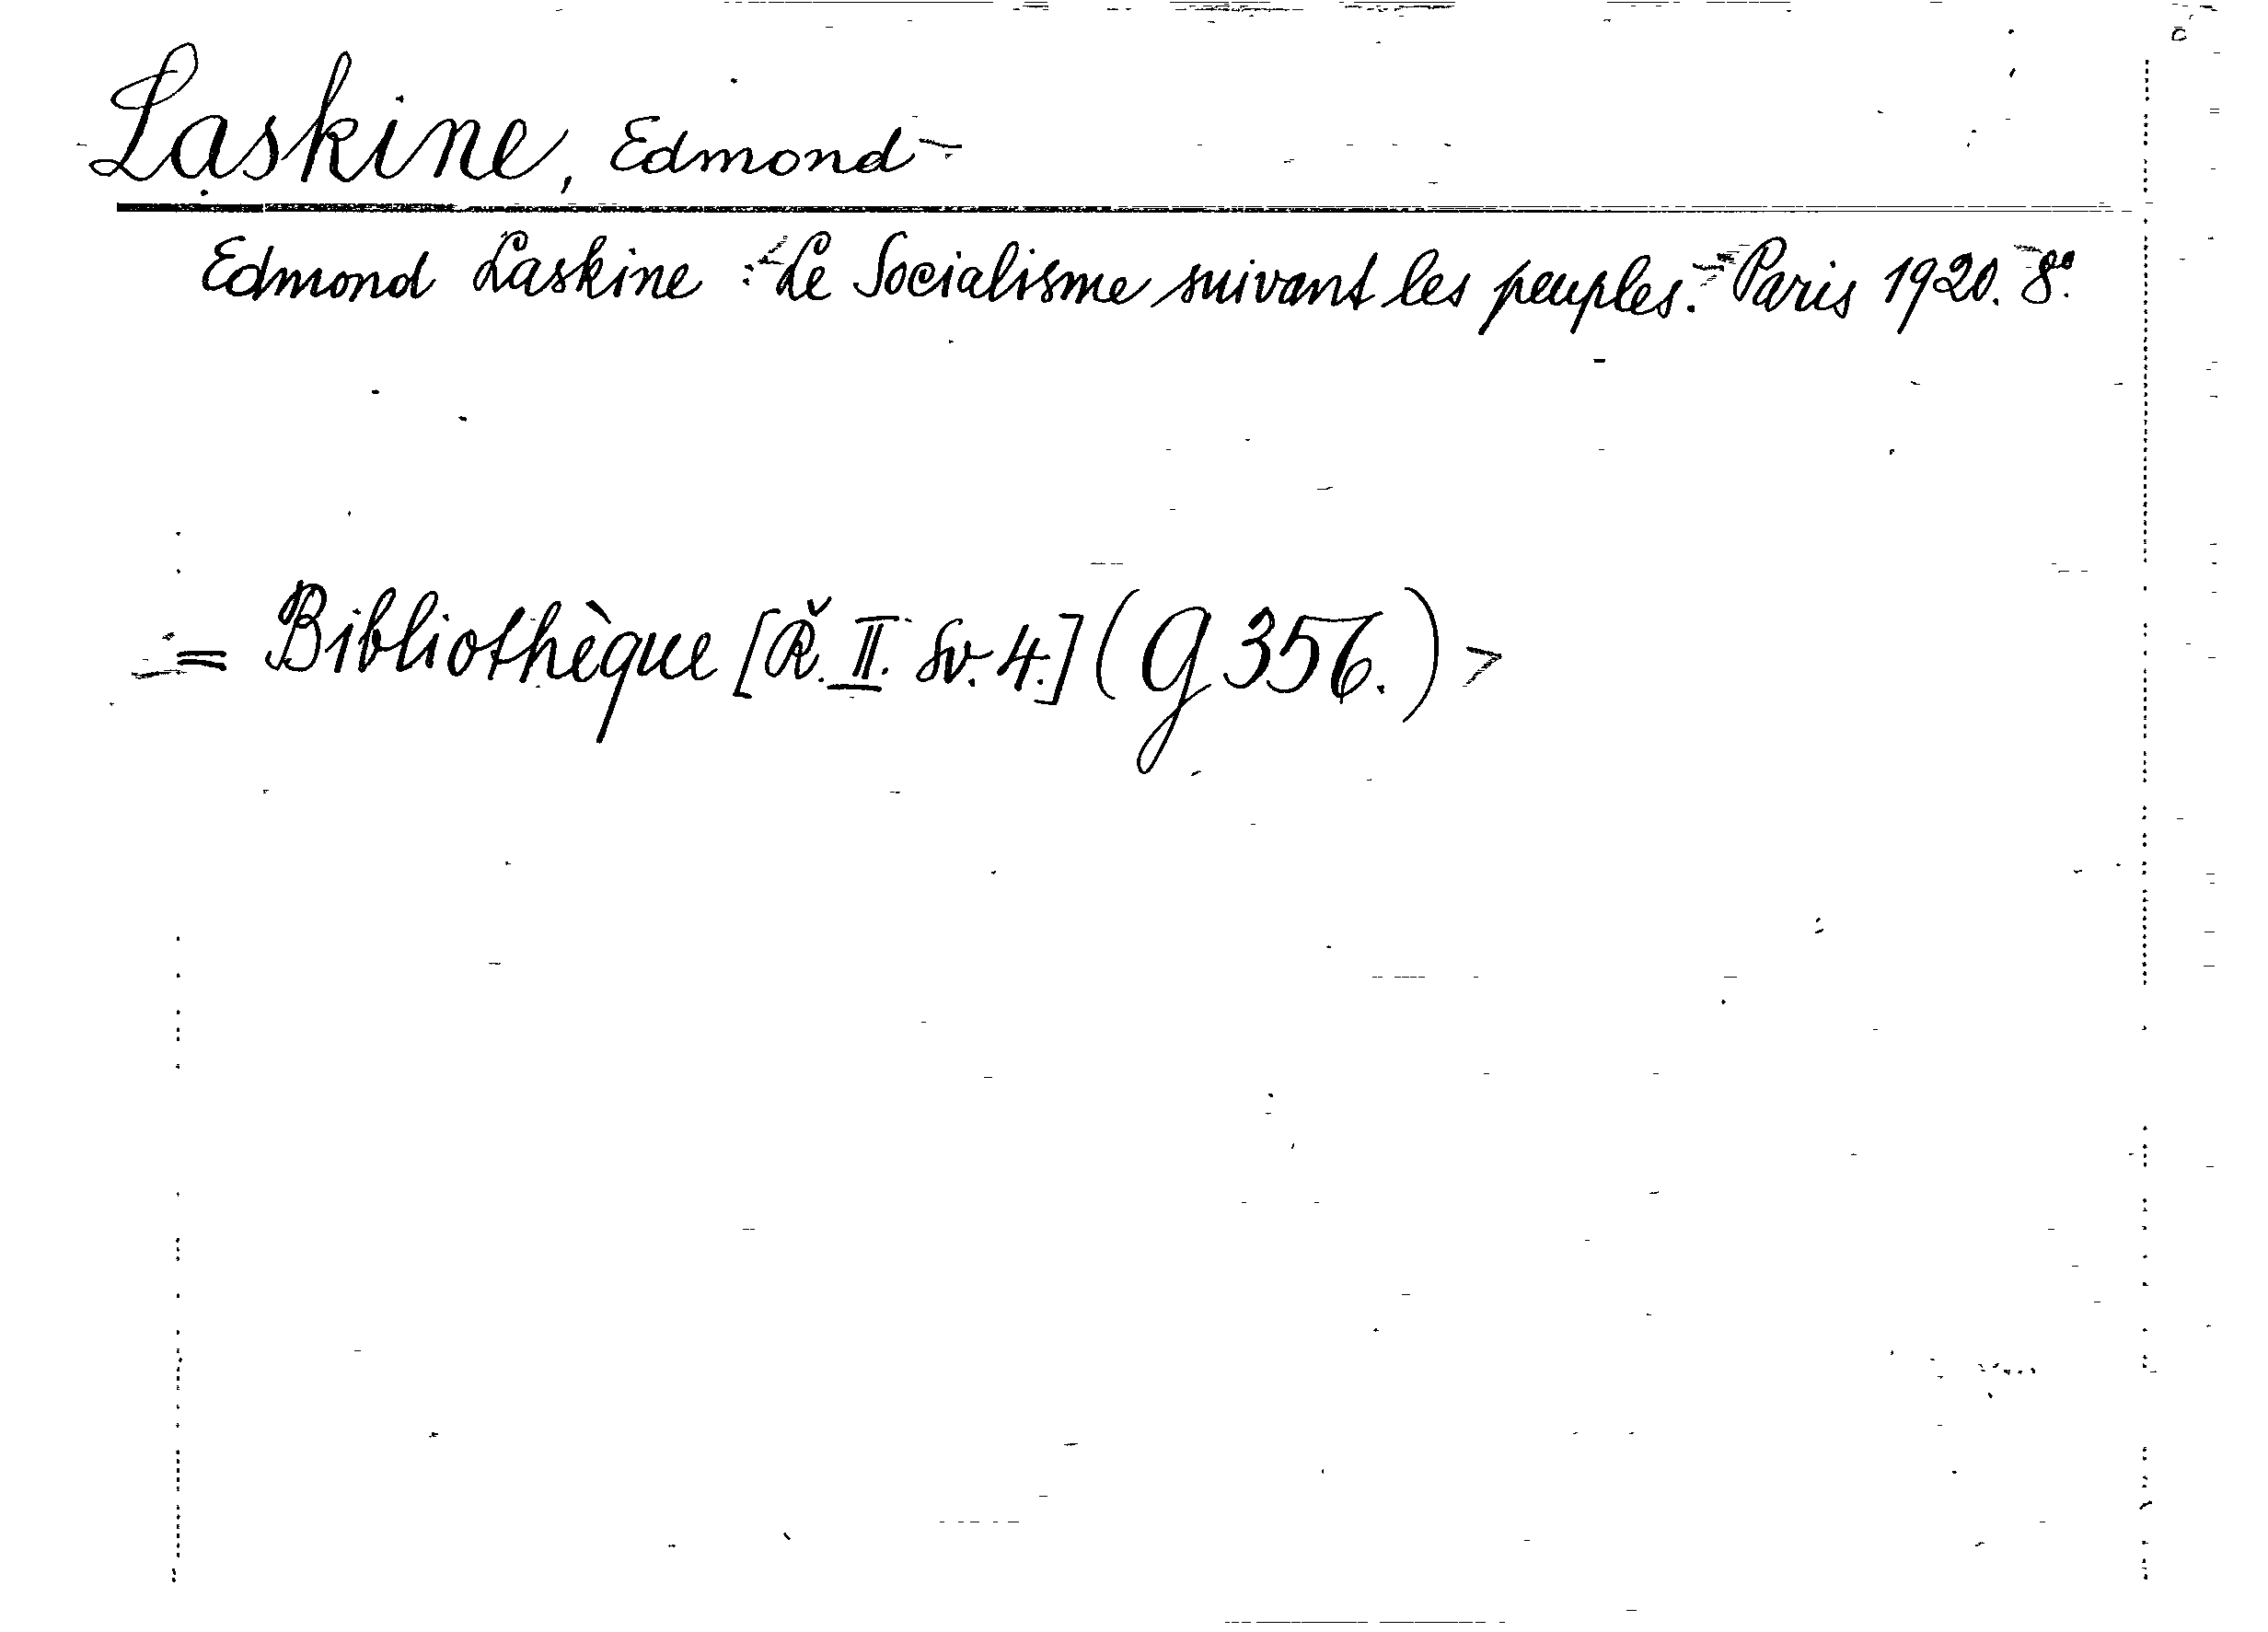 Laskine, Edmond
Edmond Laskine : Le Socialisme suivant les peuples. Paris 1920. 8°.
= Bibliothèque [Ř. II. Sv. 4.] (G 356.)